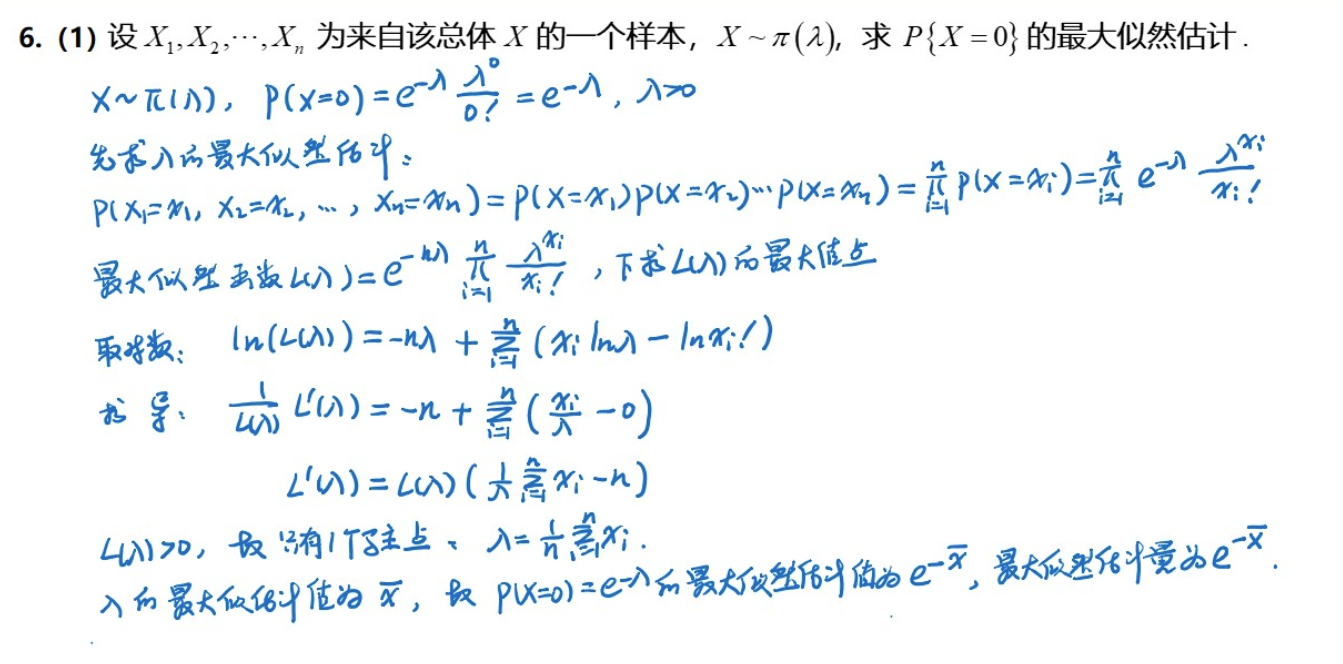 6. (1) 设 X₁,X₂,⋯,Xₙ 为来自该总体 X 的一个样本，X ~ π(λ), 求 P{X = 0} 的最大似然估计.
X~π(λ), P(X=0) = e^{-λ} λ⁰/0! = e^{-λ}, λ>0
先求λ的最大似然估计:
P(X₁=x₁, X₂=x₂, ⋯, Xₙ=xₙ) = P(X=x₁)P(X=x₂)⋯P(X=xₙ) = ∏_{i=1}^{n} P(X=xᵢ) = ∏_{i=1}^{n} e^{-λ} λ^{xᵢ}/xᵢ!
最大似然函数L(λ) = e^{-nλ} ∏_{i=1}^{n} λ^{xᵢ}/xᵢ! , 下求L(λ)的最大值点
取对数: ln(L(λ)) = -nλ + ∑_{i=1}^{n} (xᵢ lnλ - ln xᵢ!)
求导: 1/L(λ) L'(λ) = -n + ∑_{i=1}^{n} (xᵢ/λ - 0)
L'(λ) = L(λ) ( 1/λ ∑_{i=1}^{n} xᵢ - n)
L(λ)>0, 故只有1个驻点、λ = 1/n ∑_{i=1}^{n} xᵢ.
λ的最大似估计值为 x̄, 故 P(X=0) = e^{-λ}的最大似然估计值为 e^{-x̄}, 最大似然估计量为 e^{-X̄}.